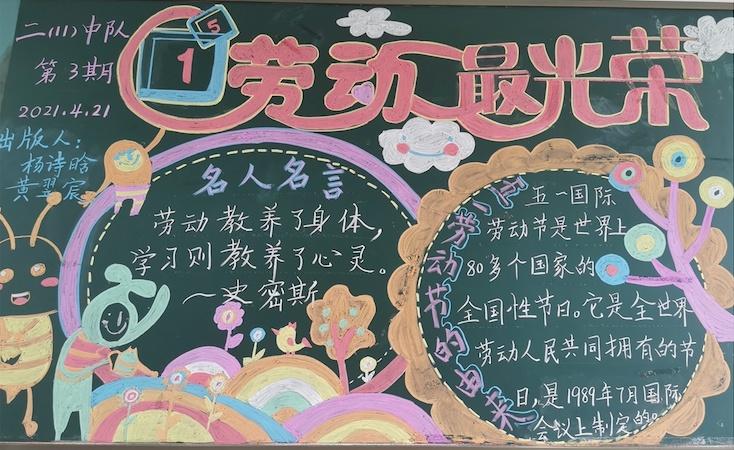 二(1)中队
第3期
2021.4.21
出版人：
杨诗晗
黄翌宸
5
1
劳动最光荣
名人名言
劳动教养了身体，
学习则教养了心灵。
—史密斯
劳动节的由来
五一国际
劳动节是世界上
80多个国家的
全国性节日。它是全世界
劳动人民共同拥有的节
日，是1989年7月国际
会议上制定的。